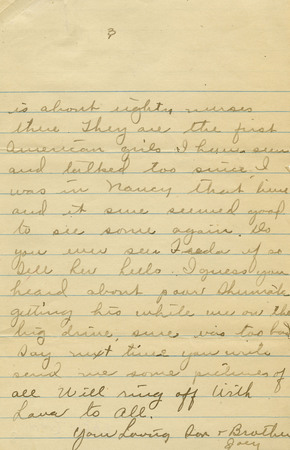 3
is about eighty nurses
thue They are the first
American girls I have seen
and talked too since I
was in Nancy that time
and it sure seemed good
to see some again. Do
you ever see Freda if so
tell her hello. I guess you
heard about poor
getting his while we on the
big drive, sure was too bad
Say next time you write
send me some pictures of
all Will ring off With
Love to All.
Your Loving Son + Brother